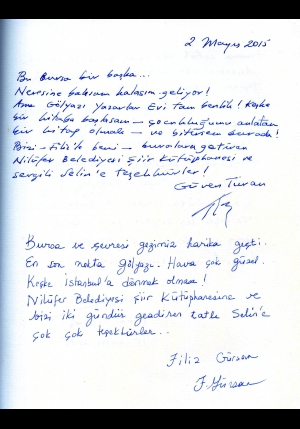 2 Mayıs 2015
Bu Bursa bir başka...
Neresine baksam kalasım geliyor!
Ama Gölyazı Yazarlar Evi tam benlik! Keşke
bir kitaba başlasam — çocukluğumu anlatan
bir kitap olmalı — ve bitirsem burada!
Bizi - Filiz'le beni - buralara getiren
Nilüfer Belediyesi Şiir Kütüphanesi ve
sevgili Selin'e teşekkürler!
Güven Turan
Bursa ve çevresi gezimiz harika geçti.
En son nokta Gölyazı. Hava çok güzel.
Keşke İstanbul'a dönmek olmasa!
Nilüfer Belediyesi Şiir Kütüphanesine ve
bizi iki gündür gezdiren tatlı Selin'e
çok çok teşekkürler..
Filiz Gürsan
F. Gürsan